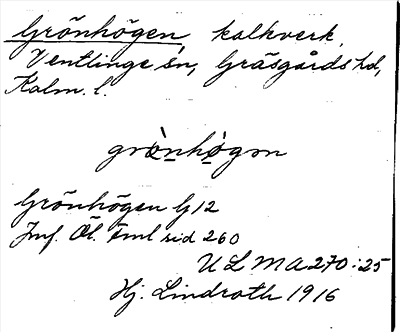 Grönhögen, kalkverk,
Ventlinge sn, Gräsgårds hd,
Kalm. l.
grò̱nhø̱gən
Grönhögen G 12
Jmf. Öl. Fml sid 260
ULMA 270:25
Hj. Lindroth 1916